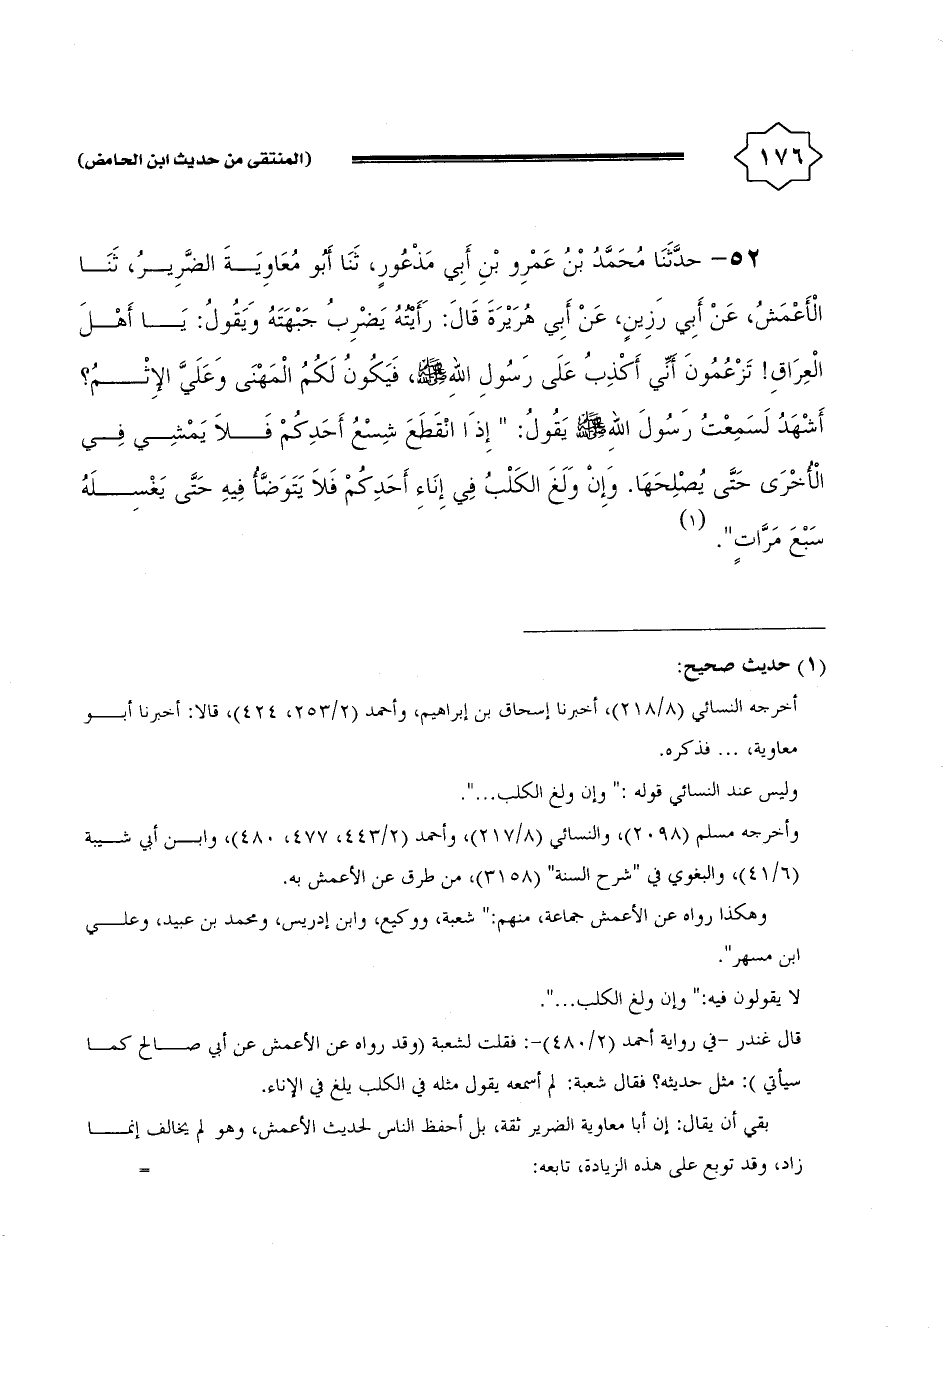 ١٧٦ (المنتقى من حديث ابن الحامض)
٥٢- حدَّثَنَا مُحَمَّدُ بْنُ عَمْرِو بْنِ أَبِي مَذْعُورٍ، ثَنَا أَبُو مُعَاوِيَةَ الضَّرِيرُ، ثَنَا
الْأَعْمَشُ، عَنْ أَبِي رَزِينٍ، عَنْ أَبِي هُرَيْرَةَ قَالَ: رَأَيْتُهُ يَضْرِبُ جَبْهَتَهُ وَيَقُولُ: يَا أَهْلَ
الْعِرَاقِ! تَزْعُمُونَ أَنِّي أَكْذِبُ عَلَى رَسُولِ اللهِ ﷺ، فَيَكُونُ لَكُمُ الْمَهْنَى وَعَلَيَّ الإِثْمُ؟
أَشْهَدُ لَسَمِعْتُ رَسُولَ اللهِ ﷺ يَقُولُ: " إِذَا انْقَطَعَ شِسْعُ أَحَدِكُمْ فَلاَ يَمْشِي فِي
الْأُخْرَى حَتَّى يُصْلِحَهَا. وَإِنْ وَلَغَ الكَلْبُ فِي إِنَاءِ أَحَدِكُمْ فَلاَ يَتَوَضَّأُ فِيهِ حَتَّى يَغْسِلَهُ
سَبْعَ مَرَّاتٍ". (١)
(١) حديث صحيح:
أخرجه النسائي (٢١٨/٨)، أخبرنا إسحاق بن إبراهيم، وأحمد (٢٥٣/٢، ٤٢٤)، قالا: أخبرنا أبو
معاوية، ... فذكره.
وليس عند النسائي قوله :" وإن ولغ الكلب...".
وأخرجه مسلم (٢٠٩٨)، والنسائي (٢١٧/٨)، وأحمد (٤٤٣/٢، ٤٧٧، ٤٨٠)، وابن أبي شيبة
(٤١/٦)، والبغوي في "شرح السنة" (٣١٥٨)، من طرق عن الأعمش به.
وهكذا رواه عن الأعمش جماعة، منهم:" شعبة، ووكيع، وابن إدريس، ومحمد بن عبيد، وعلي
ابن مسهر".
لا يقولون فيه:" وإن ولغ الكلب...".
قال غندر -في رواية أحمد (٤٨٠/٢)-: فقلت لشعبة (وقد رواه عن الأعمش عن أبي صالح كما
سيأتي ): مثل حديثه؟ فقال شعبة: لم أسمعه يقول مثله في الكلب يلغ في الإناء.
بقي أن يقال: إن أبا معاوية الضرير ثقة، بل أحفظ الناس لحديث الأعمش، وهو لم يخالف إنما
زاد، وقد توبع على هذه الزيادة، تابعه: =